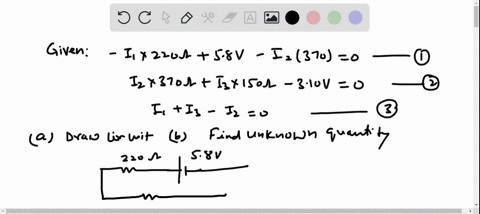 Given: - I₁ × 220Ω + 5.8V - I₂ (370) = 0 —— ①
I₂ × 370Ω + I₃ × 150Ω - 3.10V = 0 —— ②
I₁ + I₃ - I₂ = 0 —— ③
(a) Draw circuit (b) Find unknown quantity
220Ω 5.8V